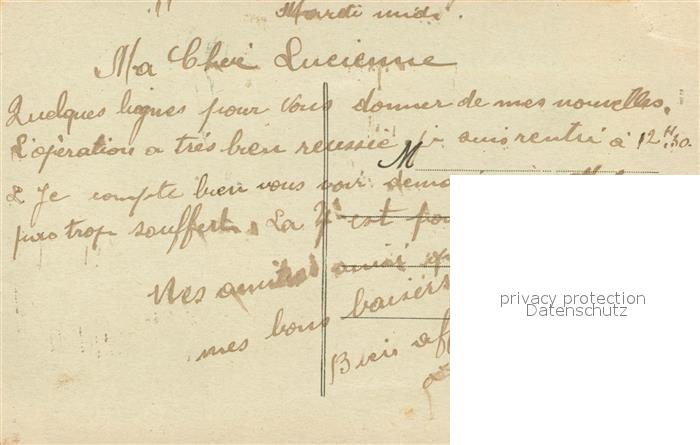 Mardi midi.
Ma Cher Lucienne
Quelques lignes pour vous donner de mes nouvelles.
L'opération a très bien reussie je suis rentré à 12H30.
M
& Je compte bien vous voir
pas trop souffert. La est
Mes amitiés ainsi
mes bons baisers
Bien
privacy protection
Datenschutz